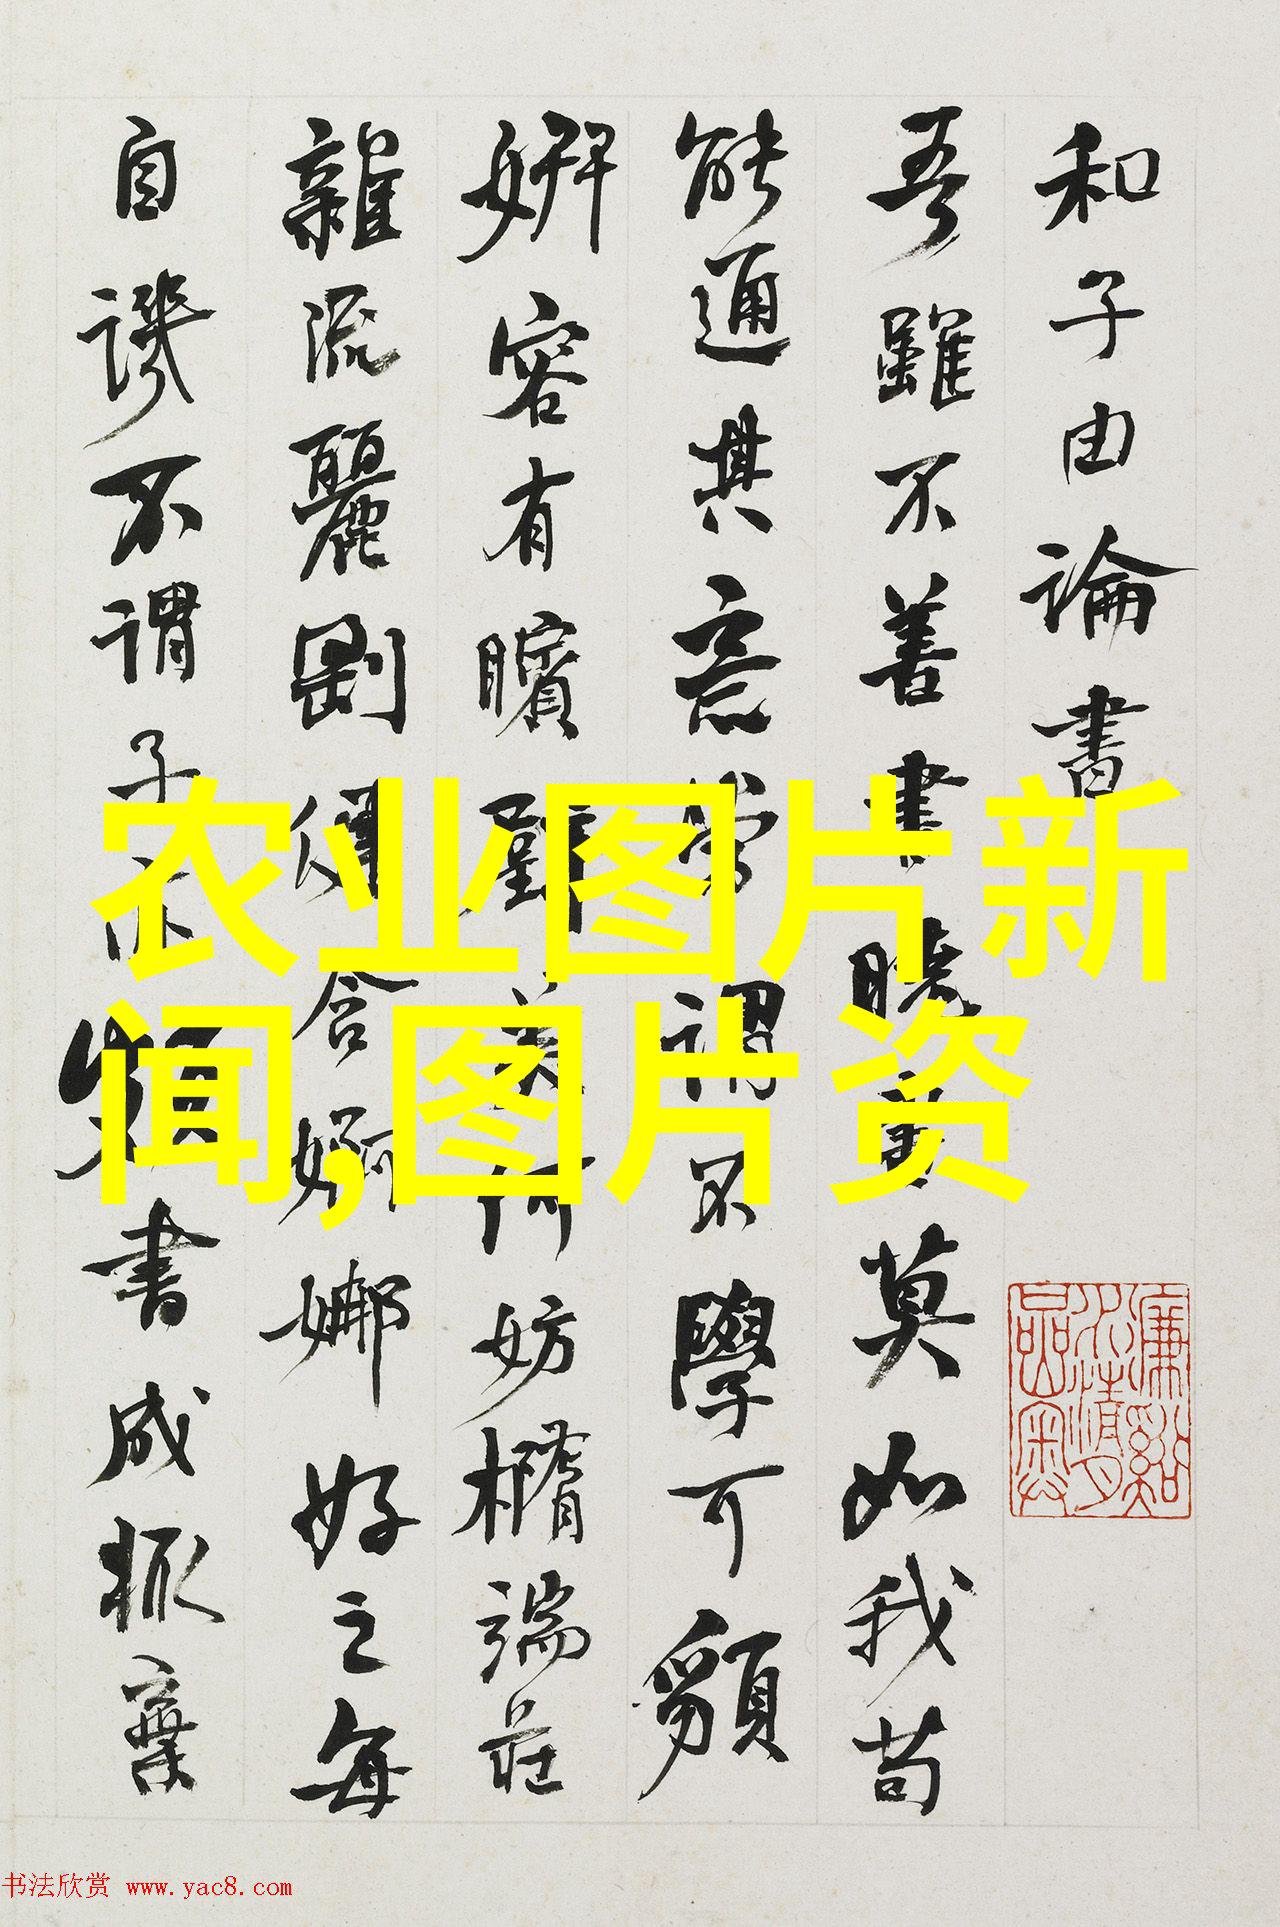 和子由論書
吾雖不善書曉書莫如我苟
能通其意常謂不學可䫉
妍容有矉璧美何妨橢端莊
雜流麗剛健含婀娜好之每
自譏不謂子亦頗書成輒棄
农业图片新
闻,图片资
书法欣赏 www.yac8.com